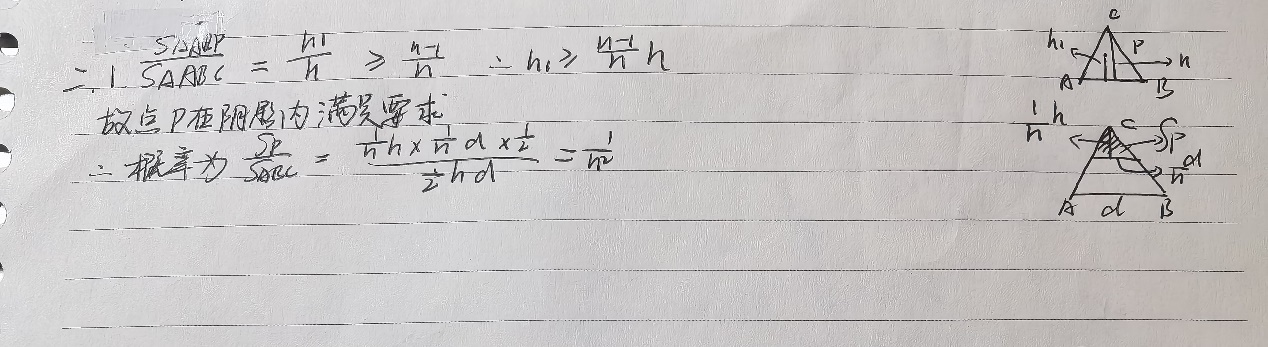 二.1 S△ABP/S△ABC = h₁/h ≥ n-1/n ∴ h₁ ≥ n-1/n h
故点P在阴影内满足要求
∴ 概率为 Sp/SABC = 1/n h × 1/n d × 1/2 / 1/2 h d = 1/n²
C
h₁
P
h
A
B
1/n h
C
Sp
d/n
A
d
B